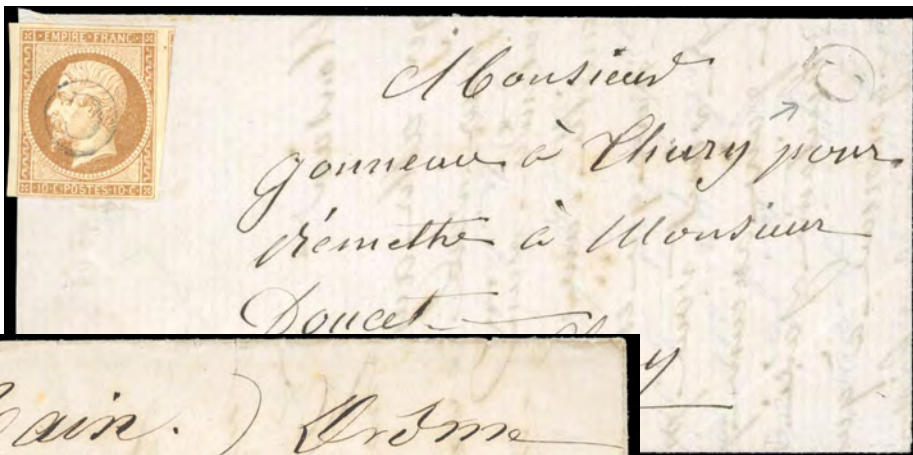 EMPIRE FRANC
10 C POSTES 10 C
Monsieur
Gonneau à Thury pour
remettre à Monsieur
Doucet
ain. ) Drôme